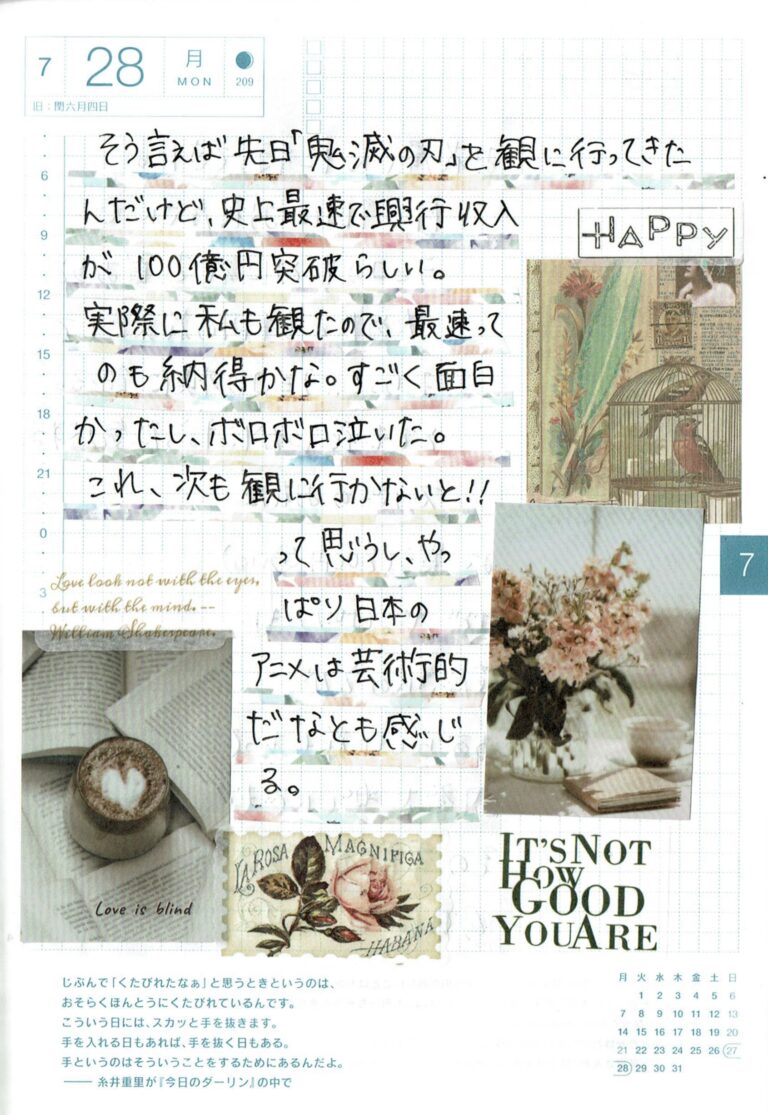 7 28 月 MON 209
旧：閏六月四日
そう言えば先日「鬼滅の刃」を観に行ってきた
んだけど、史上最速で興行収入
が100億円突破らしい。
実際に私も観たので、最速って
のも納得かな。すごく面白
かったし、ボロボロ泣いた。
これ、次も観に行かないと!!
って思うし、やっ
ぱり日本の
アニメは芸術的
だなとも感じ
る。
6
9
12
15
18
21
0
3
HAPPY
7
Love look not with the eyes,
but with the mind. --
William Shakespeare.
Love is blind
LA ROSA MAGNIFICA
HABANA
IT'S NOT
HOW
GOOD
YOU ARE
じぶんで「くたびれたなぁ」と思うときというのは、
おそらくほんとうにくたびれているんです。
こういう日には、スカッと手を抜きます。
手を入れる日もあれば、手を抜く日もある。
手というのはそういうことをするためにあるんだよ。
―― 糸井重里が『今日のダーリン』の中で
月 火 水 木 金 土 日
1 2 3 4 5 6
7 8 9 10 11 12 13
14 15 16 17 18 19 20
21 22 23 24 25 26 27
28 29 30 31